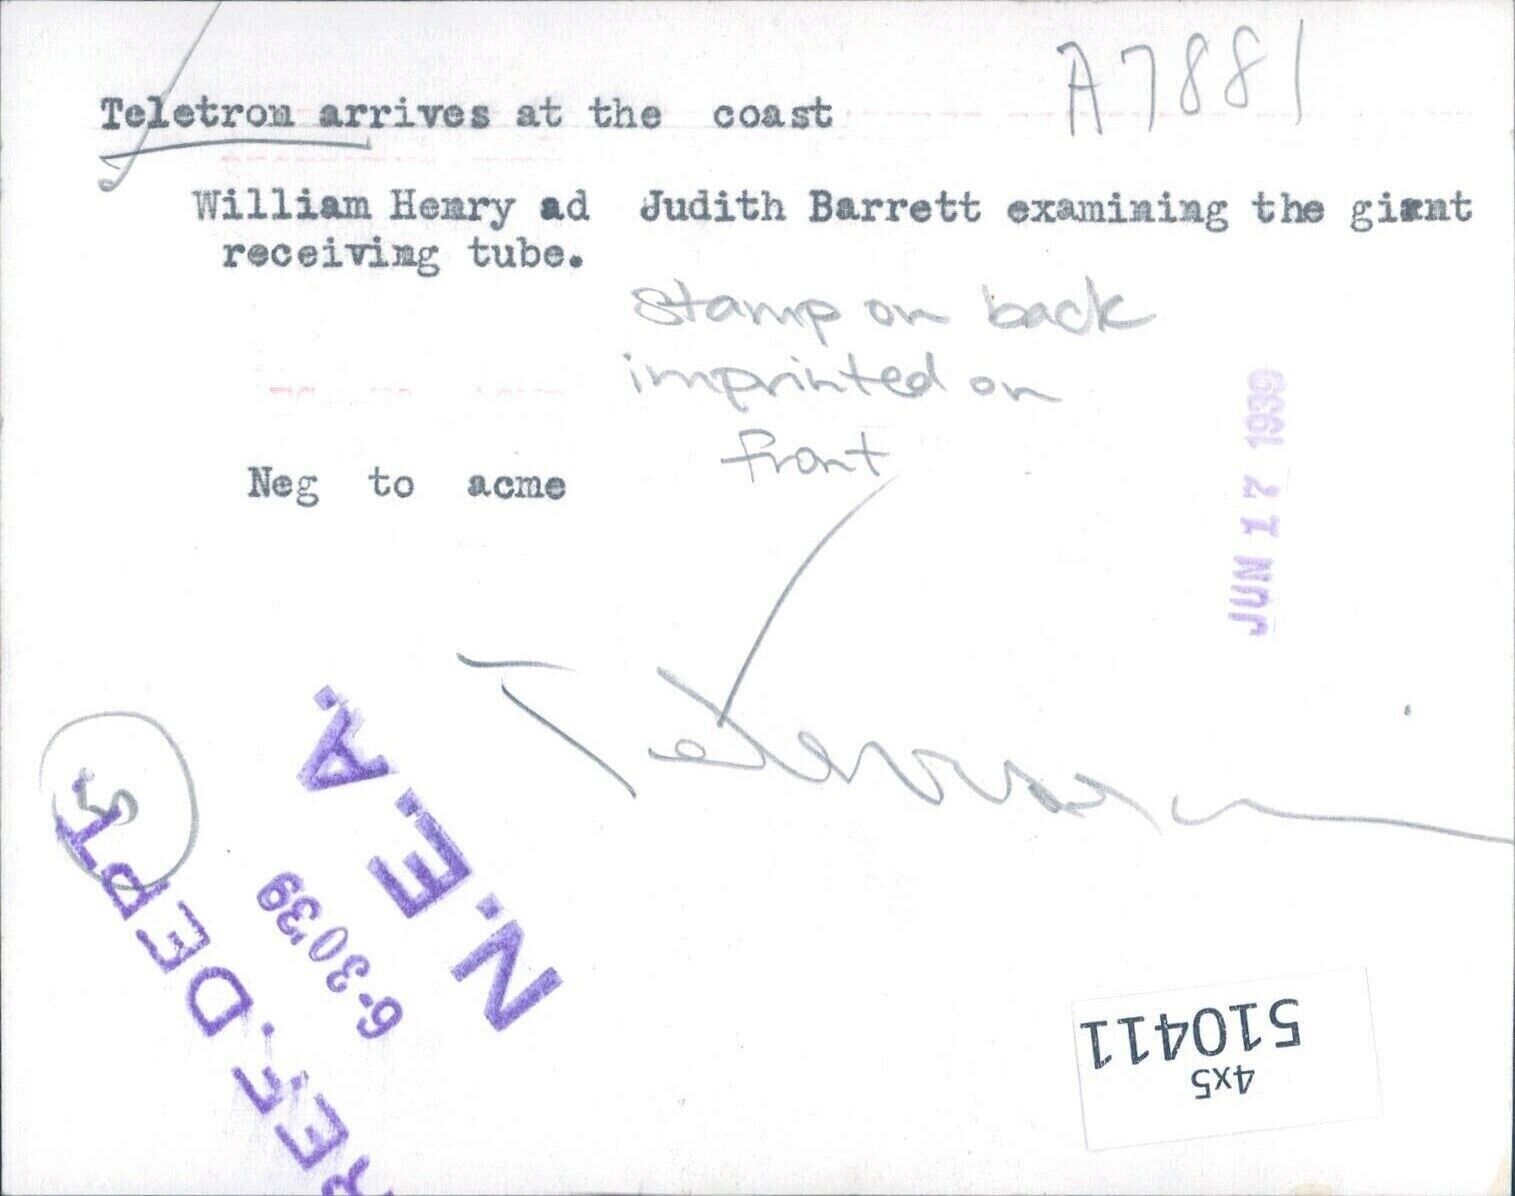 Teletron arrives at the coast
A7881
William Henry ad Judith Barrett examining the giant
receiving tube.
stamp on back
imprinted on
front
Neg to acme
JUN 17 1939
Television
5
N.E.A.
6-30'39
REF. DEPT.
510411
4x5